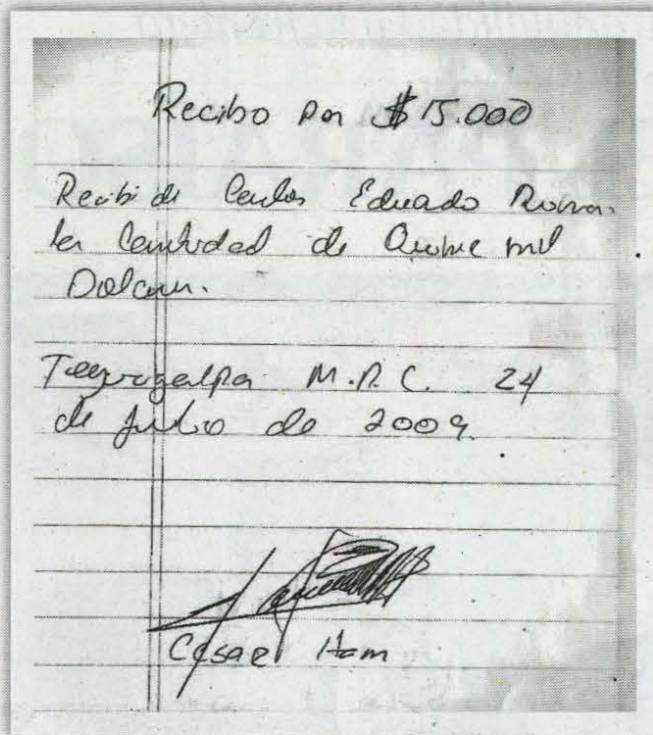 Recibo por $15.000
Recibi de Carlos Eduardo
la cantidad de Quince mil
Dolares.
Tegucigalpa M.D.C. 24
de Julio de 2009.
Cesar Ham